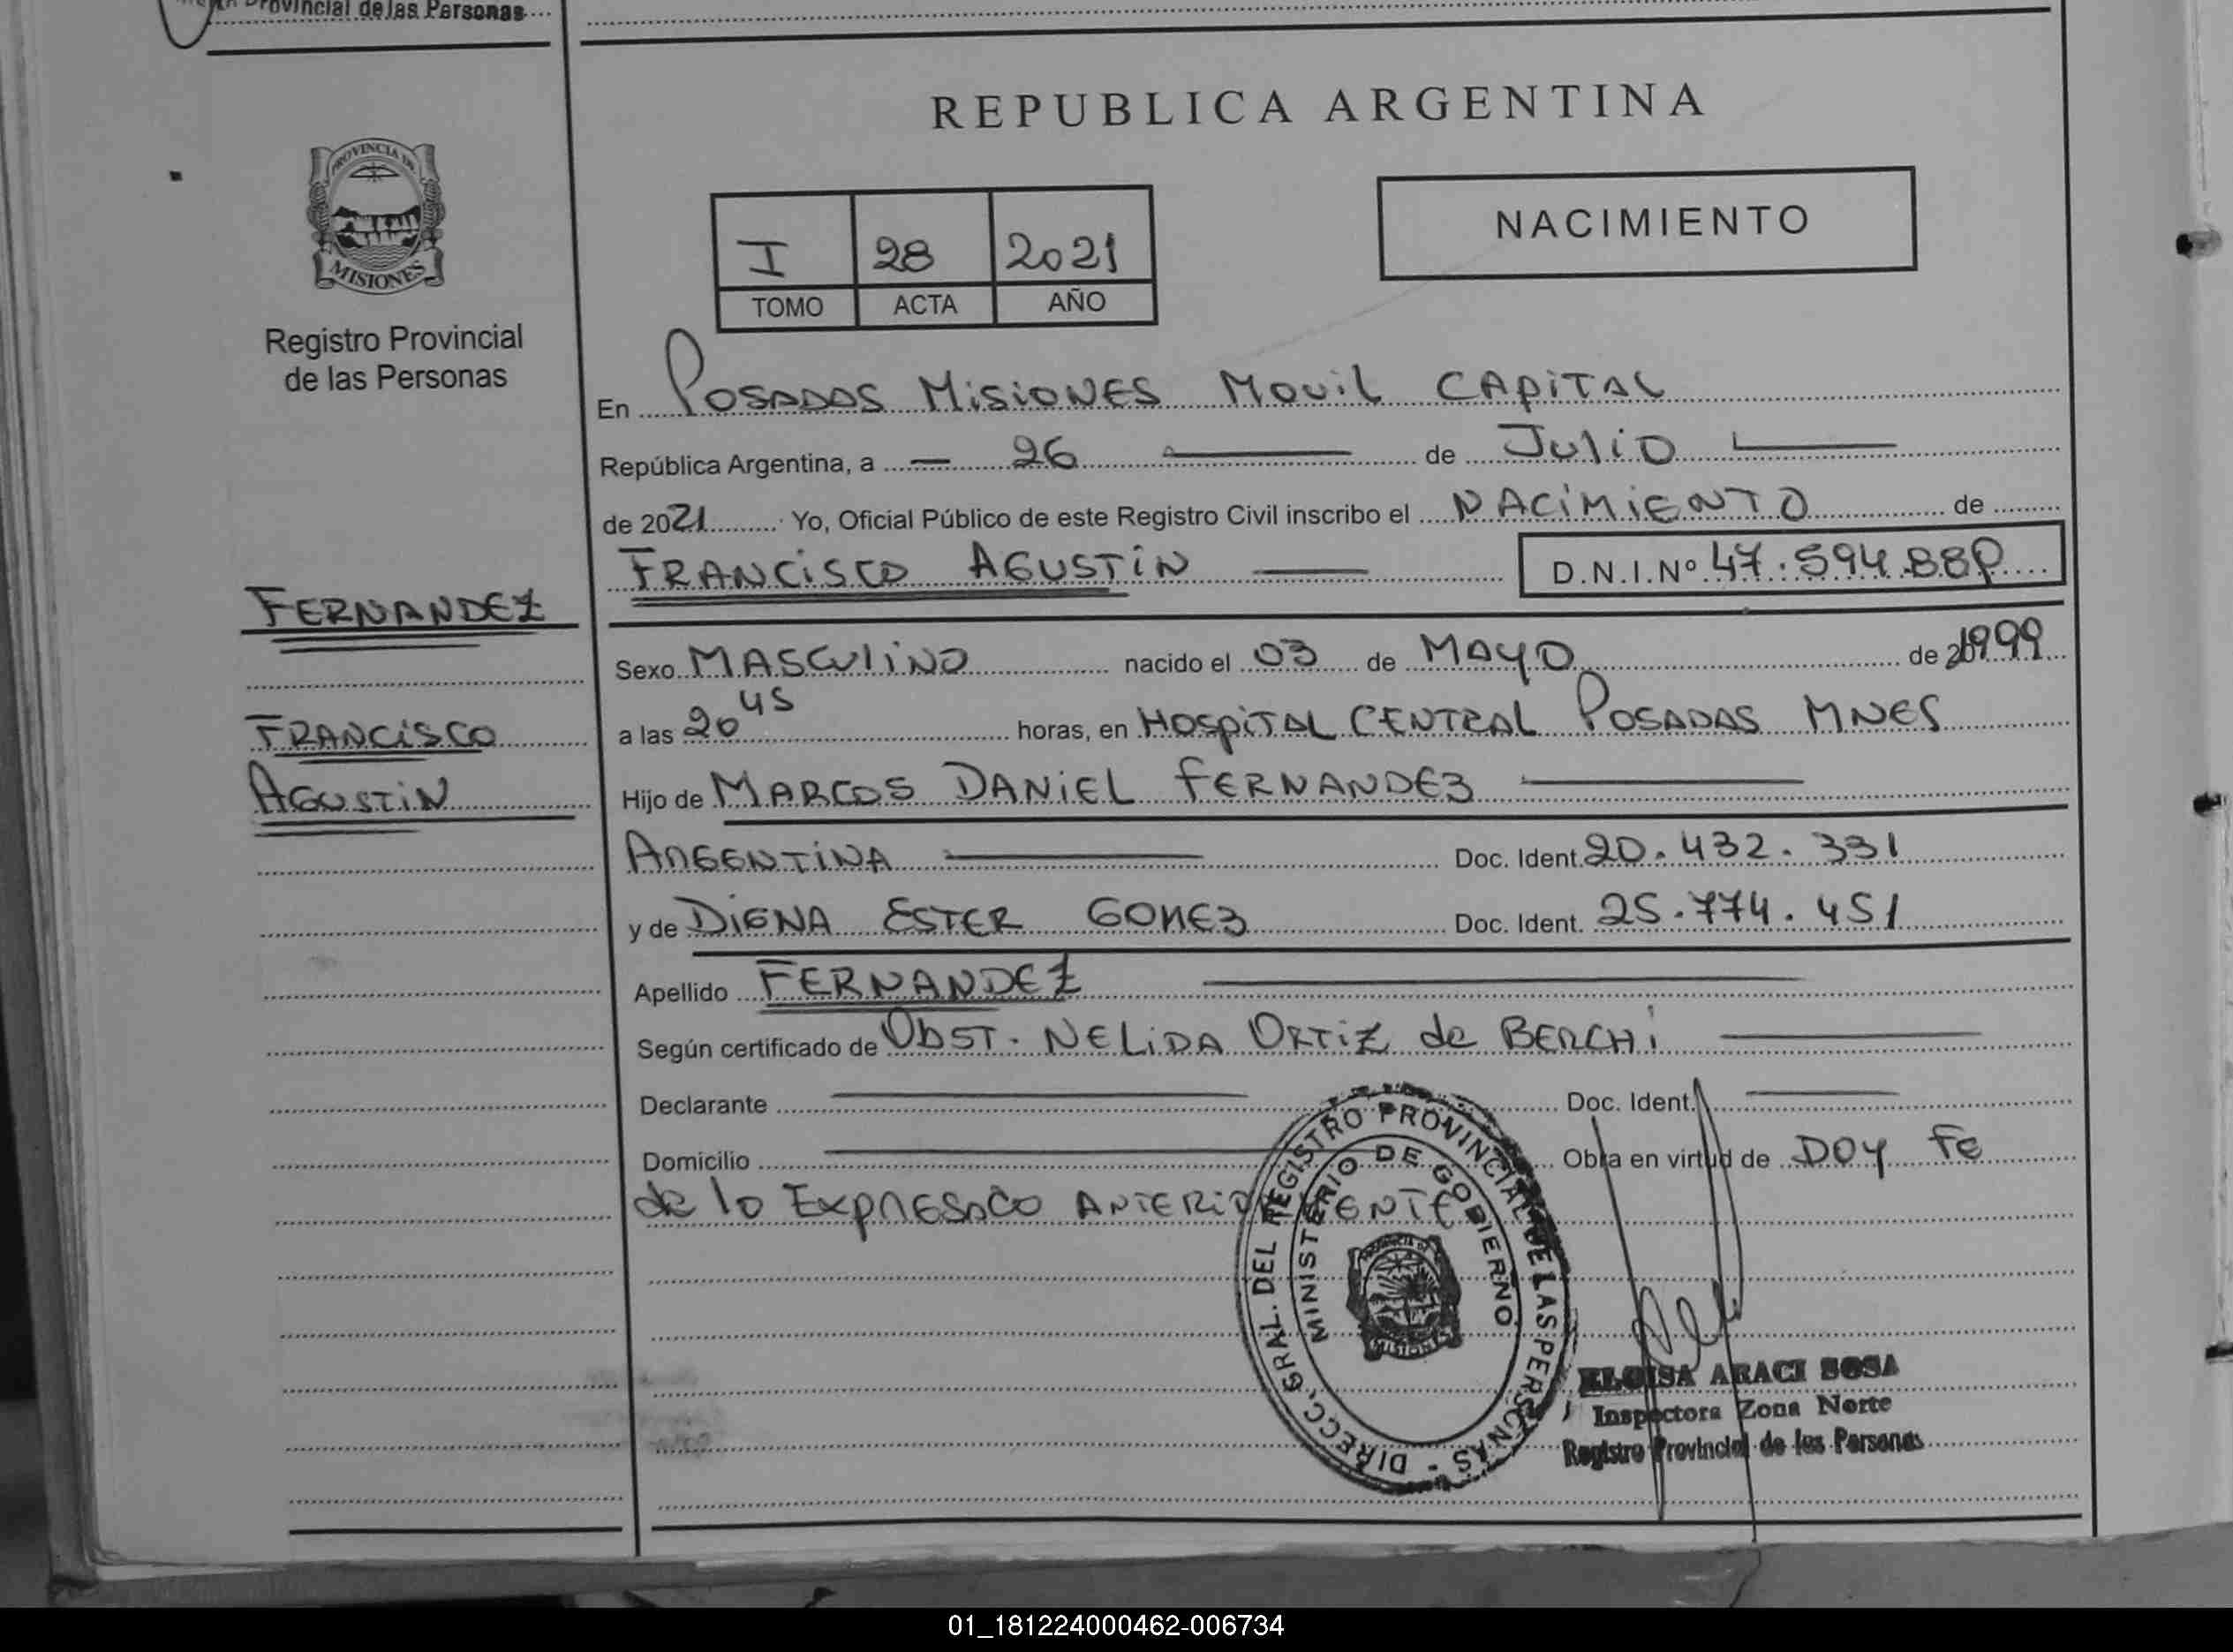 Provincial de las Personas
REPUBLICA ARGENTINA
PROVINCIA DE
MISIONES
Registro Provincial
de las Personas
NACIMIENTO
I 28 2021
TOMO ACTA AÑO
En POSADAS MISIONES MOVIL CAPITAL
República Argentina, a — 26 — de JULIO —
de 2021 Yo, Oficial Público de este Registro Civil inscribo el NACIMIENTO de
FRANCISCO AGUSTIN — D.N.I.Nº 47.594.88
FERNANDEZ
FRANCISCO
AGUSTIN
Sexo MASCULINO nacido el 03 de MAYO de 1999
a las 20 45 horas, en HOSPITAL CENTRAL POSADAS MNES
Hijo de MARCOS DANIEL FERNANDEZ —
ARGENTINA — Doc. Ident. 20.432.331
y de DIGNA ESTER GOMEZ Doc. Ident. 25.774.451
Apellido FERNANDEZ —
Según certificado de OBST. NELIDA ORTIZ de BERCHI —
Declarante — Doc. Ident. —
Domicilio — Obra en virtud de DOY Fe
de lo EXPRESADO ANTERIORMENTE
DIRECC. GRAL. DEL REGISTRO PROVINCIAL DE LAS PERSONAS -
MINISTERIO DE GOBIERNO
ELOISA ARACI SOSA
Inspectora Zona Norte
Registro Provincial de las Personas
01_181224000462-006734